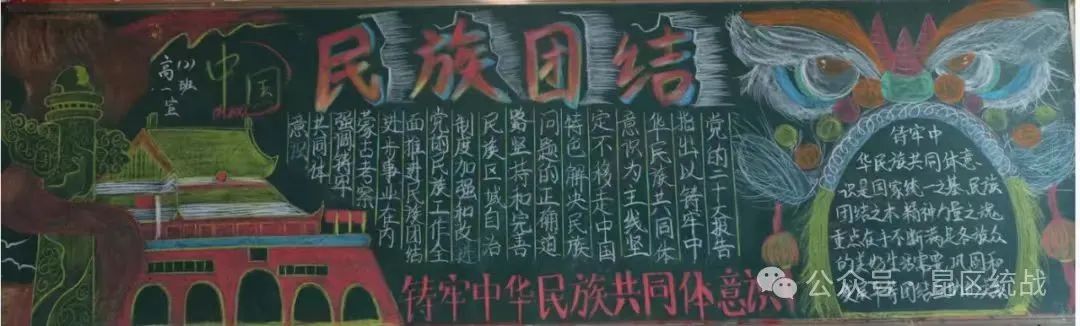 高一(2)班
中国
民族团结
党的二十大报告
指出以铸牢中
华民族共同体
意识为主线坚
定不移走中国
特色解决民族
问题的正确道
路坚持和完善
民族区域自治
制度加强和改进
党的民族工作全
面推进民族团结
进步事业在内
蒙古考察
强调铸牢
共同体
意识
铸牢中华民族共同体意识
铸牢中
华民族共同体意
识是国家统一之基、民族
团结之本、精神力量之魂,
重点在于不断满足各族众
的美好生活需要,巩固和
团结
公众号 · 昆区统战